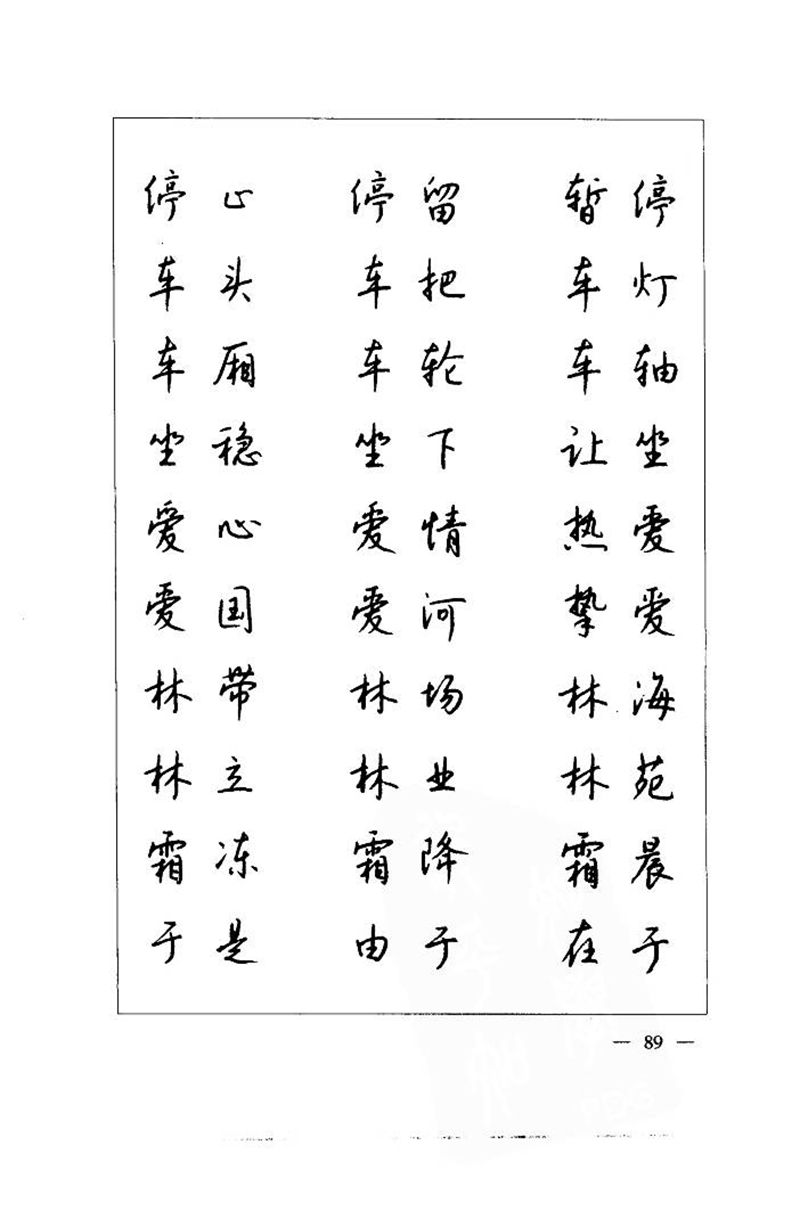 停止 停留 暂停
车头 车把 车灯
车厢 车轮 车轴
坐稳 坐下 让坐
爱心 爱情 热爱
爱国 爱河 挚爱
林带 林场 林海
林立 林业 林苑
霜冻 霜降 霜晨
于是 由于 在于
— 89 —